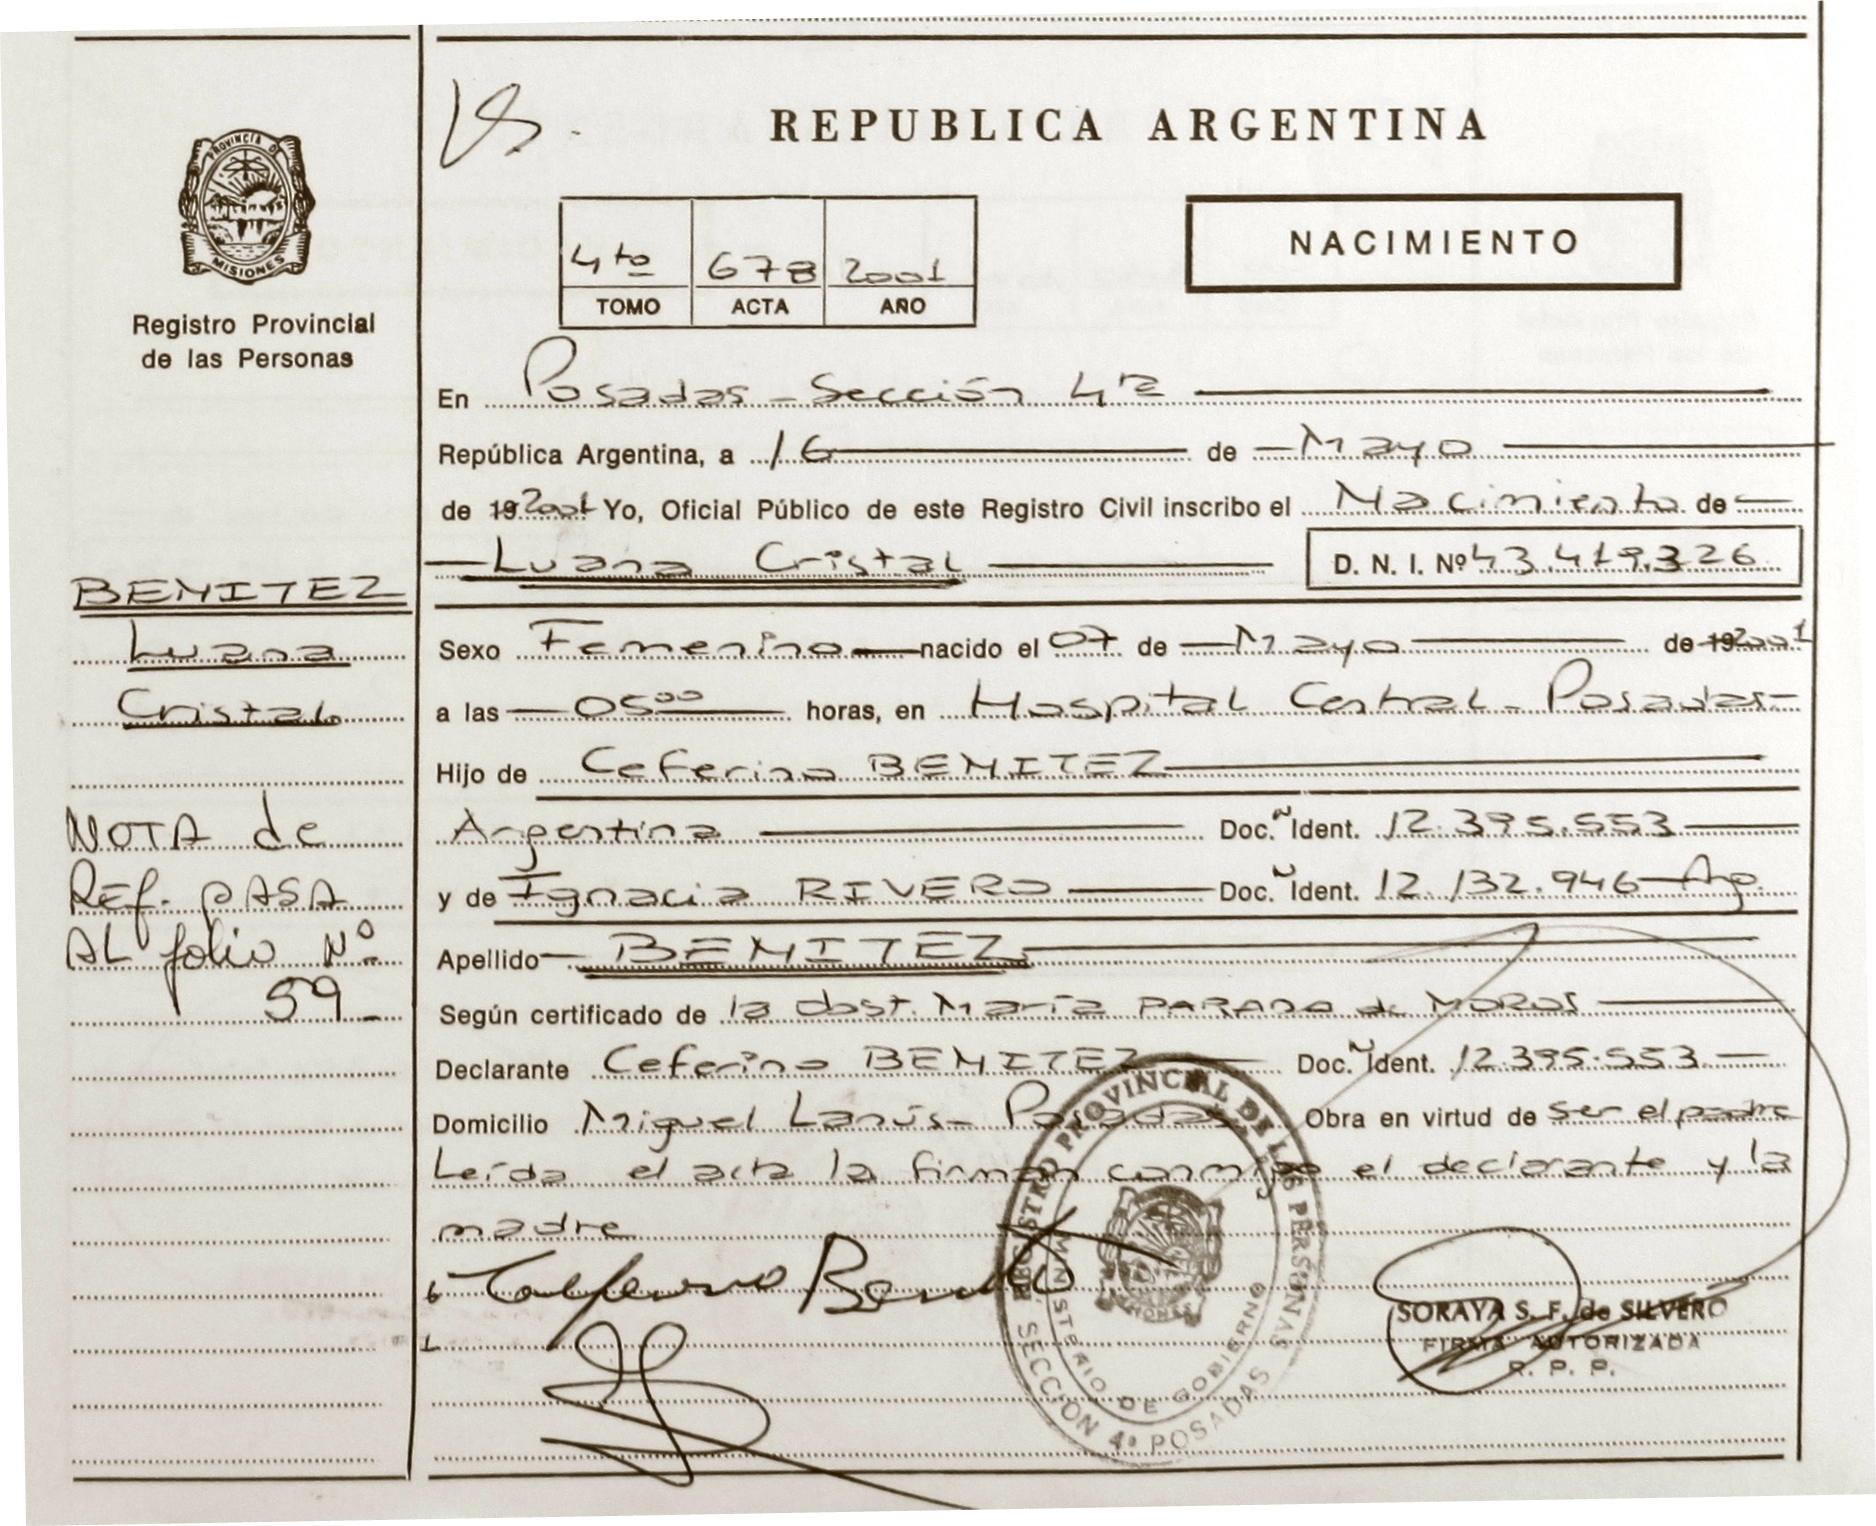 REPUBLICA ARGENTINA
PROVINCIA DE
MISIONES
Registro Provincial
de las Personas
4to 678 2001
TOMO ACTA AÑO
NACIMIENTO
En Posadas - Sección 4ta
República Argentina, a 16 de Mayo
de 19 2001 Yo, Oficial Público de este Registro Civil inscribo el Nacimiento de
Luana Cristal D. N. I. Nº 43.419.326
BENITEZ
Luana
Cristal
NOTA de
REF. PASA
AL folio Nº
59-
Sexo Femenino nacido el 07 de Mayo de 19 2001
a las 05 00 horas, en Hospital Central - Posadas-
Hijo de Ceferino BENITEZ
Argentina Doc. Ñ Ident. 12.395.553
y de Ignacia RIVERO Doc. Ñ Ident. 12.132.946 Arg.
Apellido BENITEZ
Según certificado de la obst. María PARADA de MOROS
Declarante Ceferino BENITEZ Doc. Ident. 12.395.553
Domicilio Miguel Lanús - Posadas Obra en virtud de ser el padre
Leída el acta la firman conmigo el declarante y la
madre
REGISTRO PROVINCIAL DE LAS PERSONAS
MINISTERIO DE GOBIERNO
MISIONES
SECCION 4ª POSADAS
SORAYA S. F. de SILVERO
FIRMA AUTORIZADA
R. P. P.